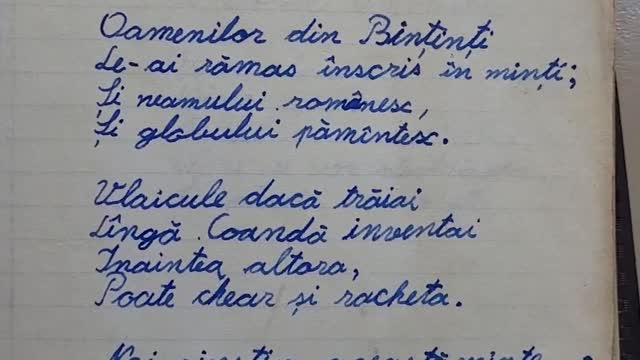 Oamenilor din Bințințî
Le-ai rămas înscris în minți;
Și neamului românesc,
Și globului pămîntesc.
Vlaicule dacă trăiai
Lîngă Coandă inventai
Inaintea altora,
Poate chear și racheta.